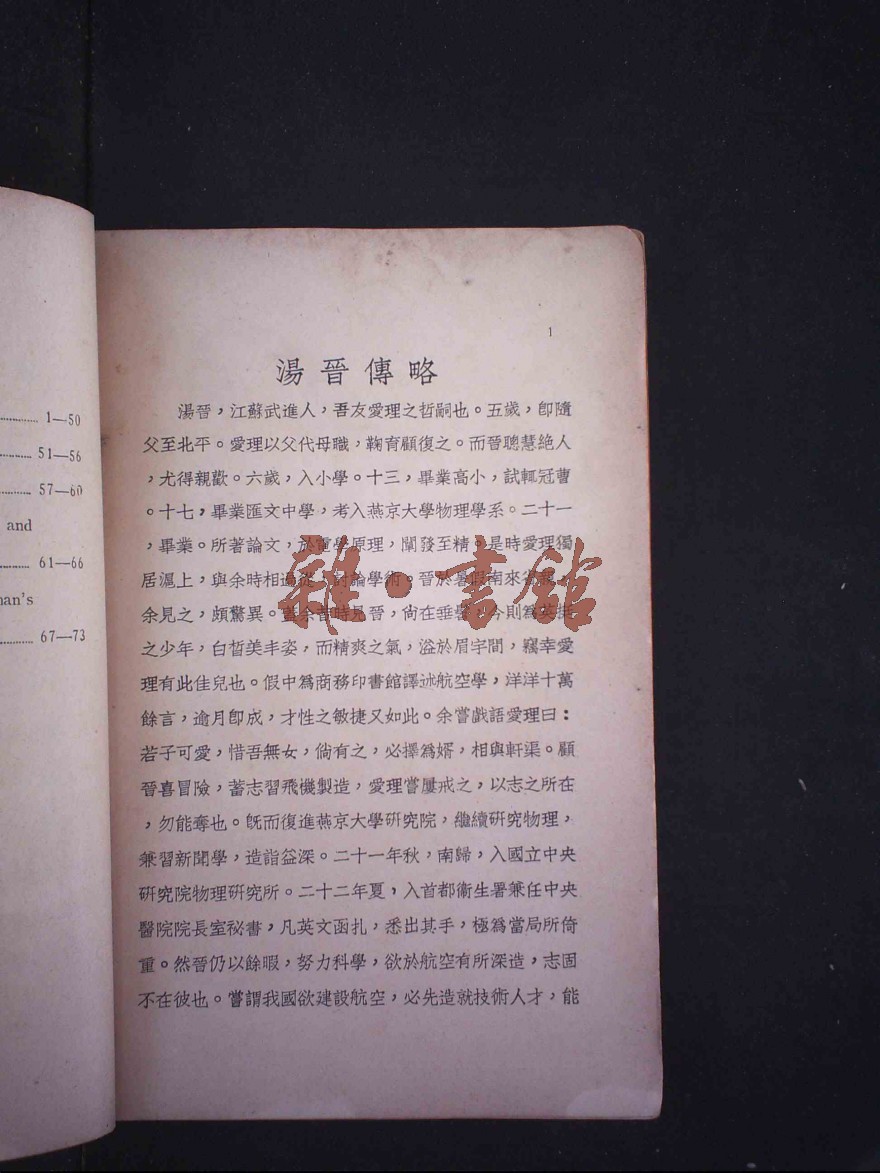 1—50
51—56
57—60
and
61—66
an's
67—73
1
湯晉傳略
湯晉，江蘇武進人，吾友愛理之哲嗣也。五歲，卽隨
父至北平。愛理以父代母職，鞠育顧復之。而晉聰慧絶人
，尤得親歡。六歲，入小學。十三，畢業高小，試輒冠曹
。十七，畢業匯文中學，考入燕京大學物理學系。二十一
，畢業。所著論文，於電學原理，闡發至精。是時愛理獨
居滬上，與余時相過從，討論學術。晉於暑假南來省親，
余見之，頗驚異。蓋余昔時見晉，尙在垂髫，今則爲英挺
之少年，白皙美丰姿，而精爽之氣，溢於眉宇間，竊幸愛
理有此佳兒也。假中爲商務印書館譯述航空學，洋洋十萬
餘言，逾月卽成，才性之敏捷又如此。余嘗戲語愛理曰：
若子可愛，惜吾無女，倘有之，必擇爲婿，相與軒渠。顧
晉喜冒險，蓄志習飛機製造，愛理嘗屢戒之，以志之所在
，勿能奪也。旣而復進燕京大學硏究院，繼續硏究物理，
兼習新聞學，造詣益深。二十一年秋，南歸，入國立中央
硏究院物理硏究所。二十二年夏，入首都衞生署兼任中央
醫院院長室祕書，凡英文函扎，悉出其手，極爲當局所倚
重。然晉仍以餘暇，努力科學，欲於航空有所深造，志固
不在彼也。嘗謂我國欲建設航空，必先造就技術人才，能
雜·書館